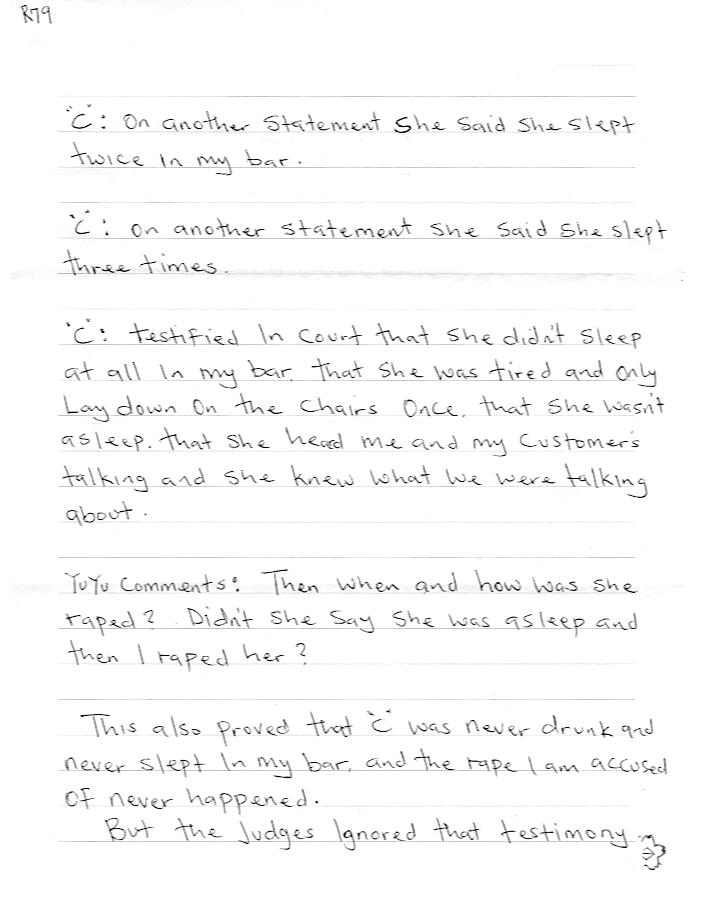 R79
"C": On another Statement She Said She slept
twice In my bar.
"C": on another statement she said she slept
three times.
"C": testified In Court that she didn't sleep
at all In my bar, that she was tired and only
Lay down On the Chairs Once, that she wasn't
asleep. that she head me and my Customer's
talking and she knew what we were talking
about.
YuYu Comments: Then when and how was she
raped? Didn't she Say She was asleep and
then I raped her?
This also proved that "C" was never drunk and
never slept In my bar, and the rape I am accused
Of never happened.
But the Judges Ignored that testimony